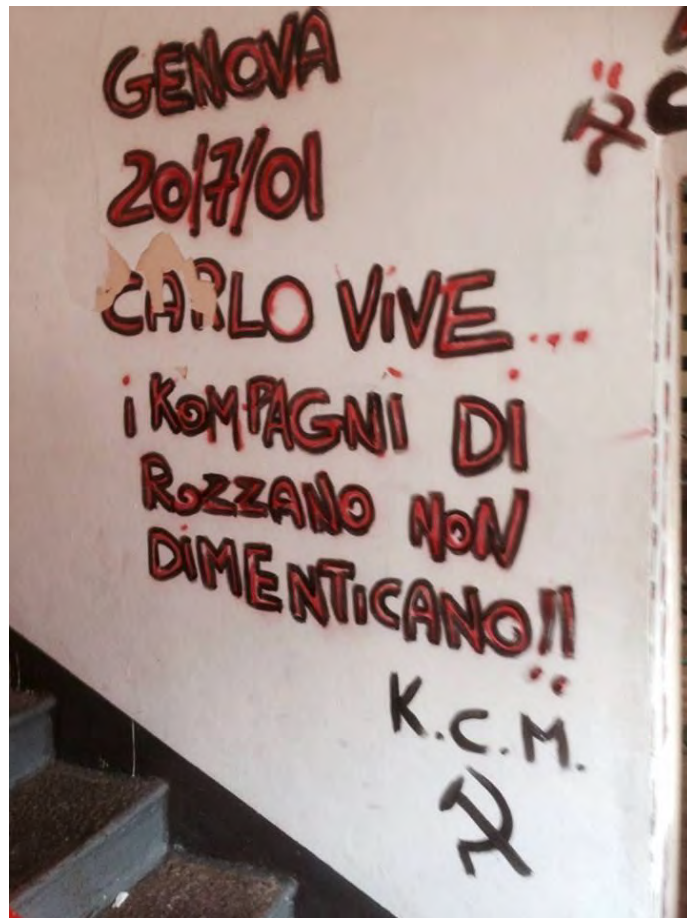 GENOVA
20/7/01
CARLO ViVE...
i KOMPAGNi DI
ROZZANO NON
DiMENTiCANO!!
K.C.M.